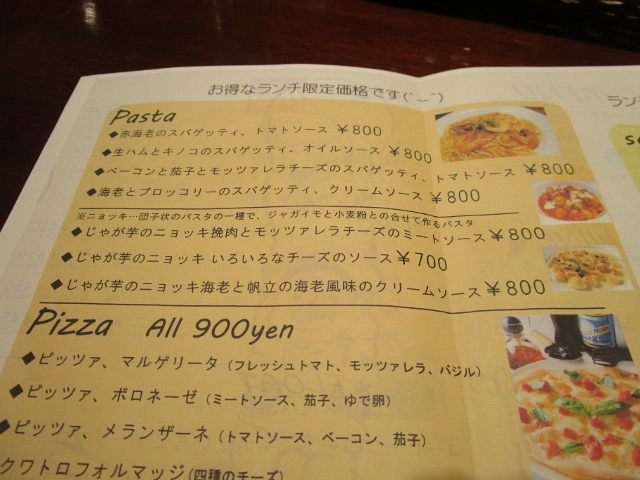 お得なランチ限定価格です(^-^)
Pasta
◆赤海老のスパゲッティ、トマトソース ¥800
◆生ハムとキノコのスパゲッティ、オイルソース ¥800
◆ベーコンと茄子とモッツァレラチーズのスパゲッティ、トマトソース ¥800
◆海老とブロッコリーのスパゲッティ、クリームソース ¥800
※ニョッキ…団子状のパスタの一種で、ジャガイモと小麦粉との合せて作るパスタ
◆じゃが芋のニョッキ挽肉とモッツァレラチーズのミートソース ¥800
◆じゃが芋のニョッキ いろいろなチーズのソース ¥700
◆じゃが芋のニョッキ海老と帆立の海老風味のクリームソース ¥800
Pizza All 900yen
◆ピッツァ、マルゲリータ（フレッシュトマト、モッツァレラ、バジル）
◆ピッツァ、ボロネーゼ（ミートソース、茄子、ゆで卵）
◆ピッツァ、メランザーネ（トマトソース、ベーコン、茄子）
クワトロフォルマッジ（四種のチーズ）
ラン